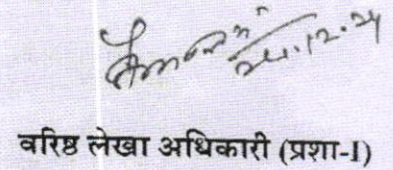 24.12.24
वरिष्ठ लेखा अधिकारी (प्रशा-I)